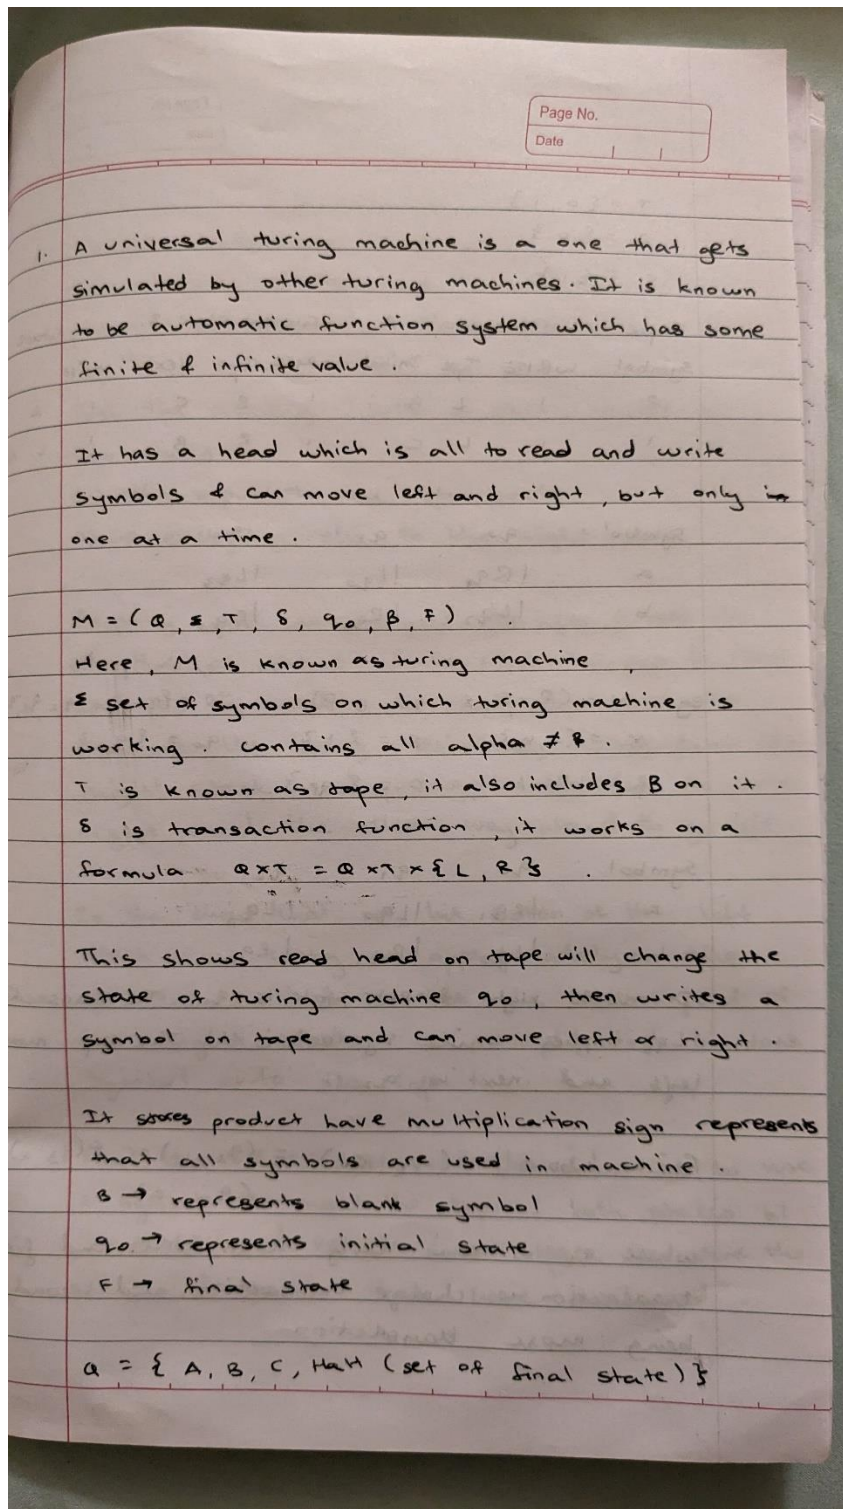 Page No.
Date
1. A universal turing machine is a one that gets
simulated by other turing machines. It is known
to be automatic function system which has some
finite & infinite value.
It has a head which is all to read and write
symbols & can move left and right, but only
one at a time.
M = (Q, Σ, T, δ, q₀, β, F)
Here, M is known as turing machine,
Σ set of symbols on which turing machine is
working. contains all alpha ≠ β.
T is known as tape, it also includes B on it.
δ is transaction function, it works on a
formula Q×T = Q×T×{L, R}.
This shows read head on tape will change the
state of turing machine q₀, then writes a
symbol on tape and can move left or right.
It stores product have multiplication sign represents
that all symbols are used in machine.
B → represents blank symbol
q₀ → represents initial state
F → final state
Q = { A, B, C, Halt (set of final state) }